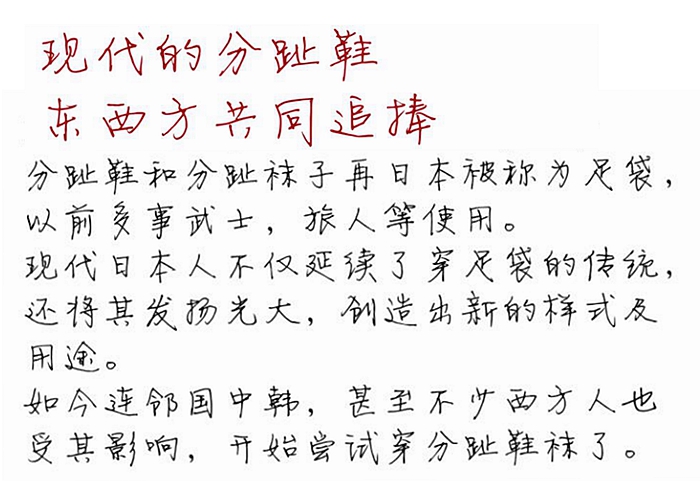 现代的分趾鞋
东西方共同追捧
分趾鞋和分趾袜子再日本被称为足袋，
以前多事武士，旅人等使用。
现代日本人不仅延续了穿足袋的传统，
还将其发扬光大，创造出新的样式及
用途。
如今连邻国中韩，甚至不少西方人也
受其影响，开始尝试穿分趾鞋袜了。